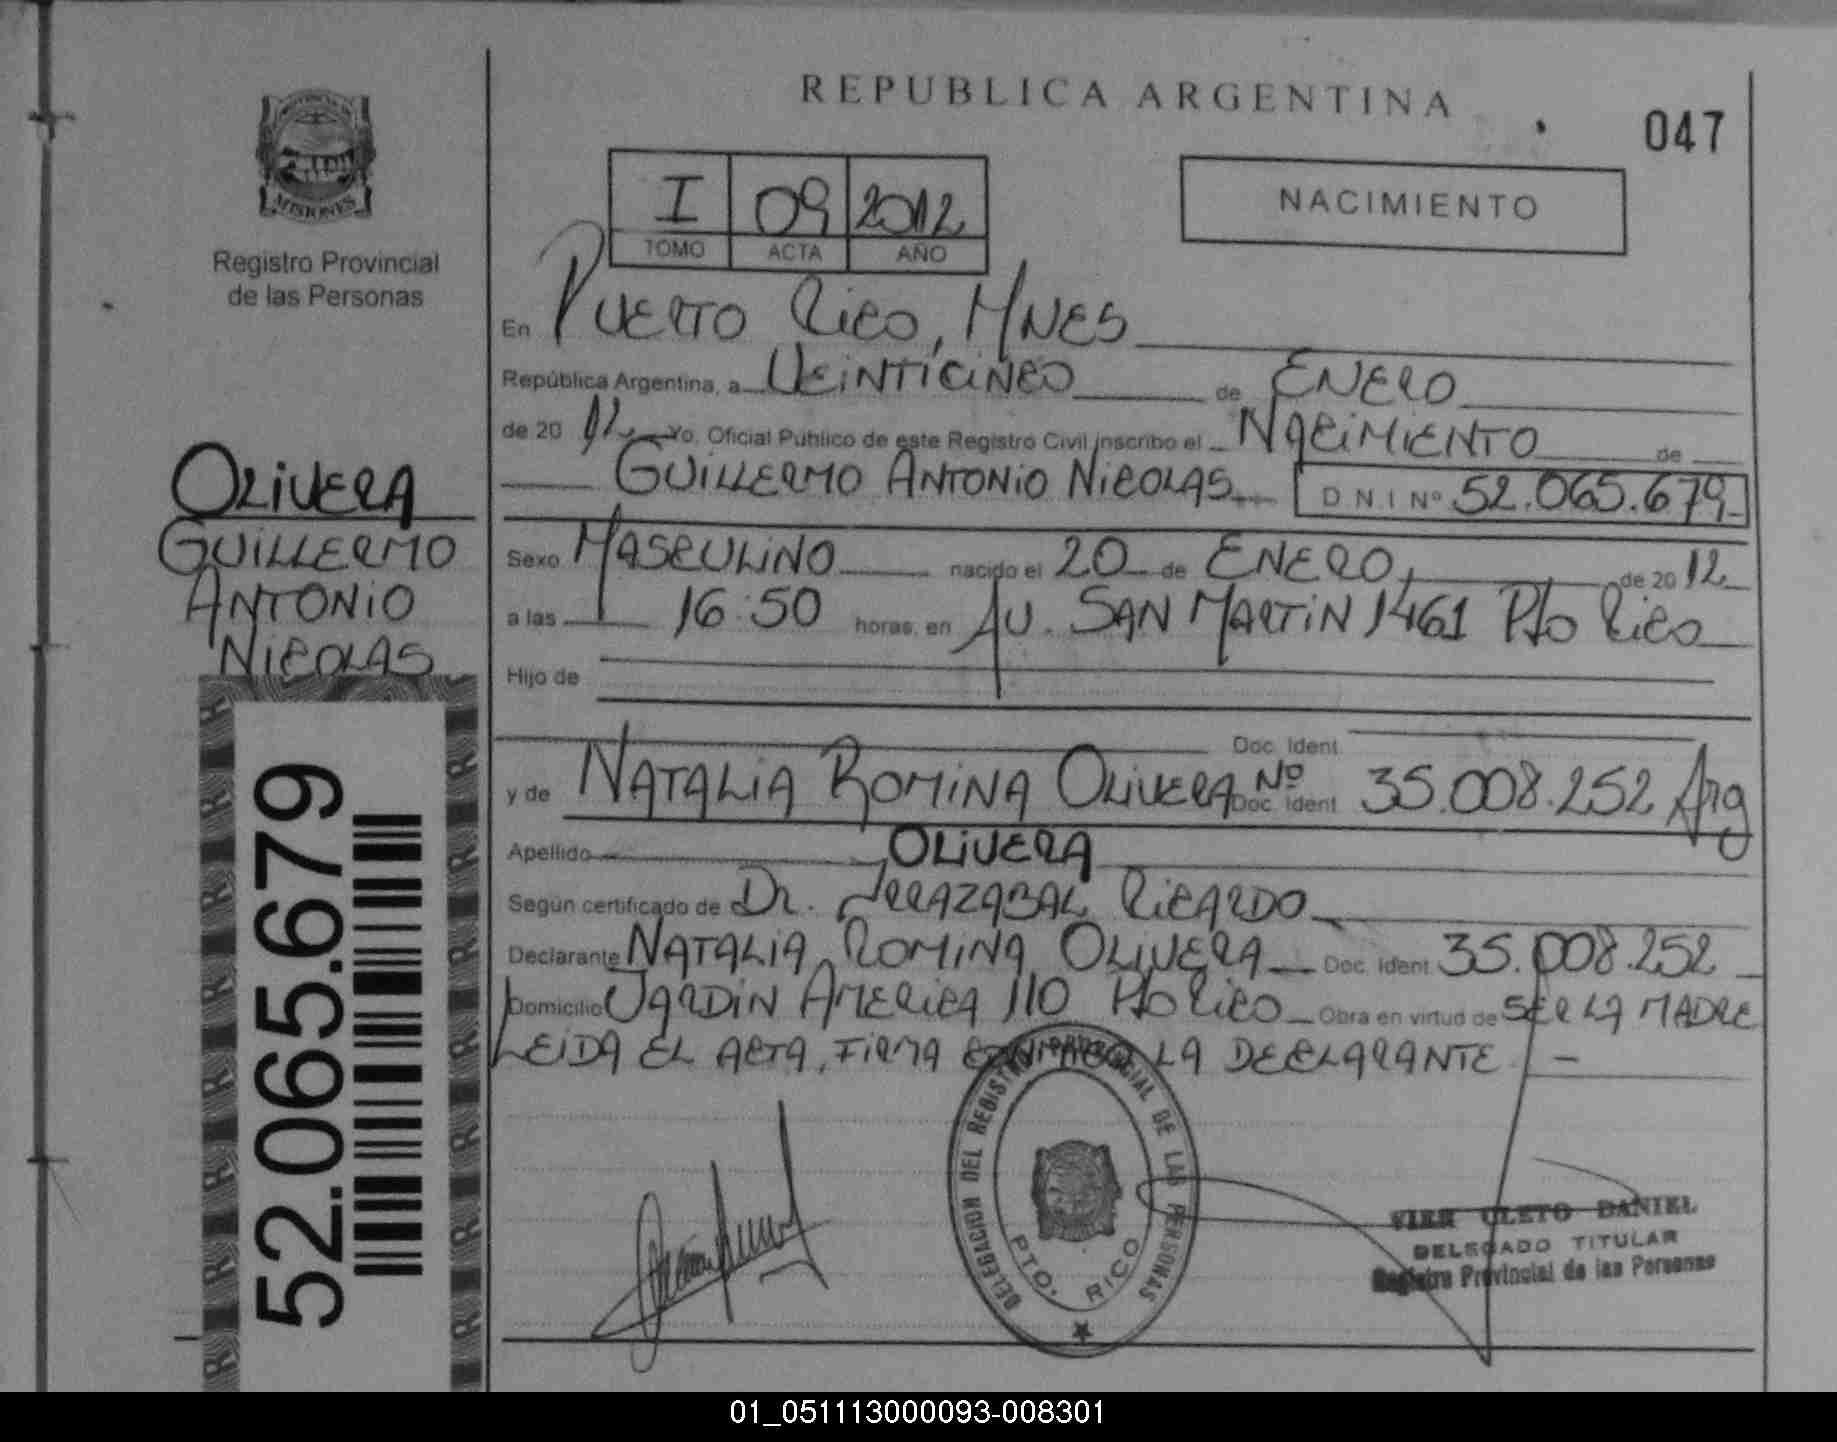 REPUBLICA ARGENTINA
047
PROVINCIA DE
MISIONES
Registro Provincial
de las Personas
I 09 2012
TOMO ACTA AÑO
NACIMIENTO
En PUERTO RICO, MNES
República Argentina, a VEINTICINCO de ENERO
de 20 12 Yo, Oficial Público de este Registro Civil inscribo el NACIMIENTO de
GUILLERMO ANTONIO NICOLAS D N I Nº 52.065.679
OLIVERA
GUILLERMO
ANTONIO
NICOLAS
Sexo MASCULINO nacido el 20 de ENERO de 20 12
a las 16:50 horas, en AV. SAN MARTIN 1461 Pto RICO
Hijo de
Doc. Ident
y de NATALIA ROMINA OLIVERA Nº Doc. Ident 35.008.252 Arg
Apellido OLIVERA
Según certificado de DR. IRRAZABAL RICARDO
Declarante NATALIA ROMINA OLIVERA Doc. Ident 35.008.252
Domicilio JARDIN AMERICA 110 Pto RICO Obra en virtud de SER LA MADRE
LEIDA EL ACTA, FIRMA LA DECLARANTE. -
52.065.679
R R R R R R R R
DELEGACION DEL REGISTRO PROVINCIAL DE LAS PERSONAS
PTO. RICO
VIER CLETO DANIEL
DELEGADO TITULAR
Registro Provincial de las Personas
01_051113000093-008301